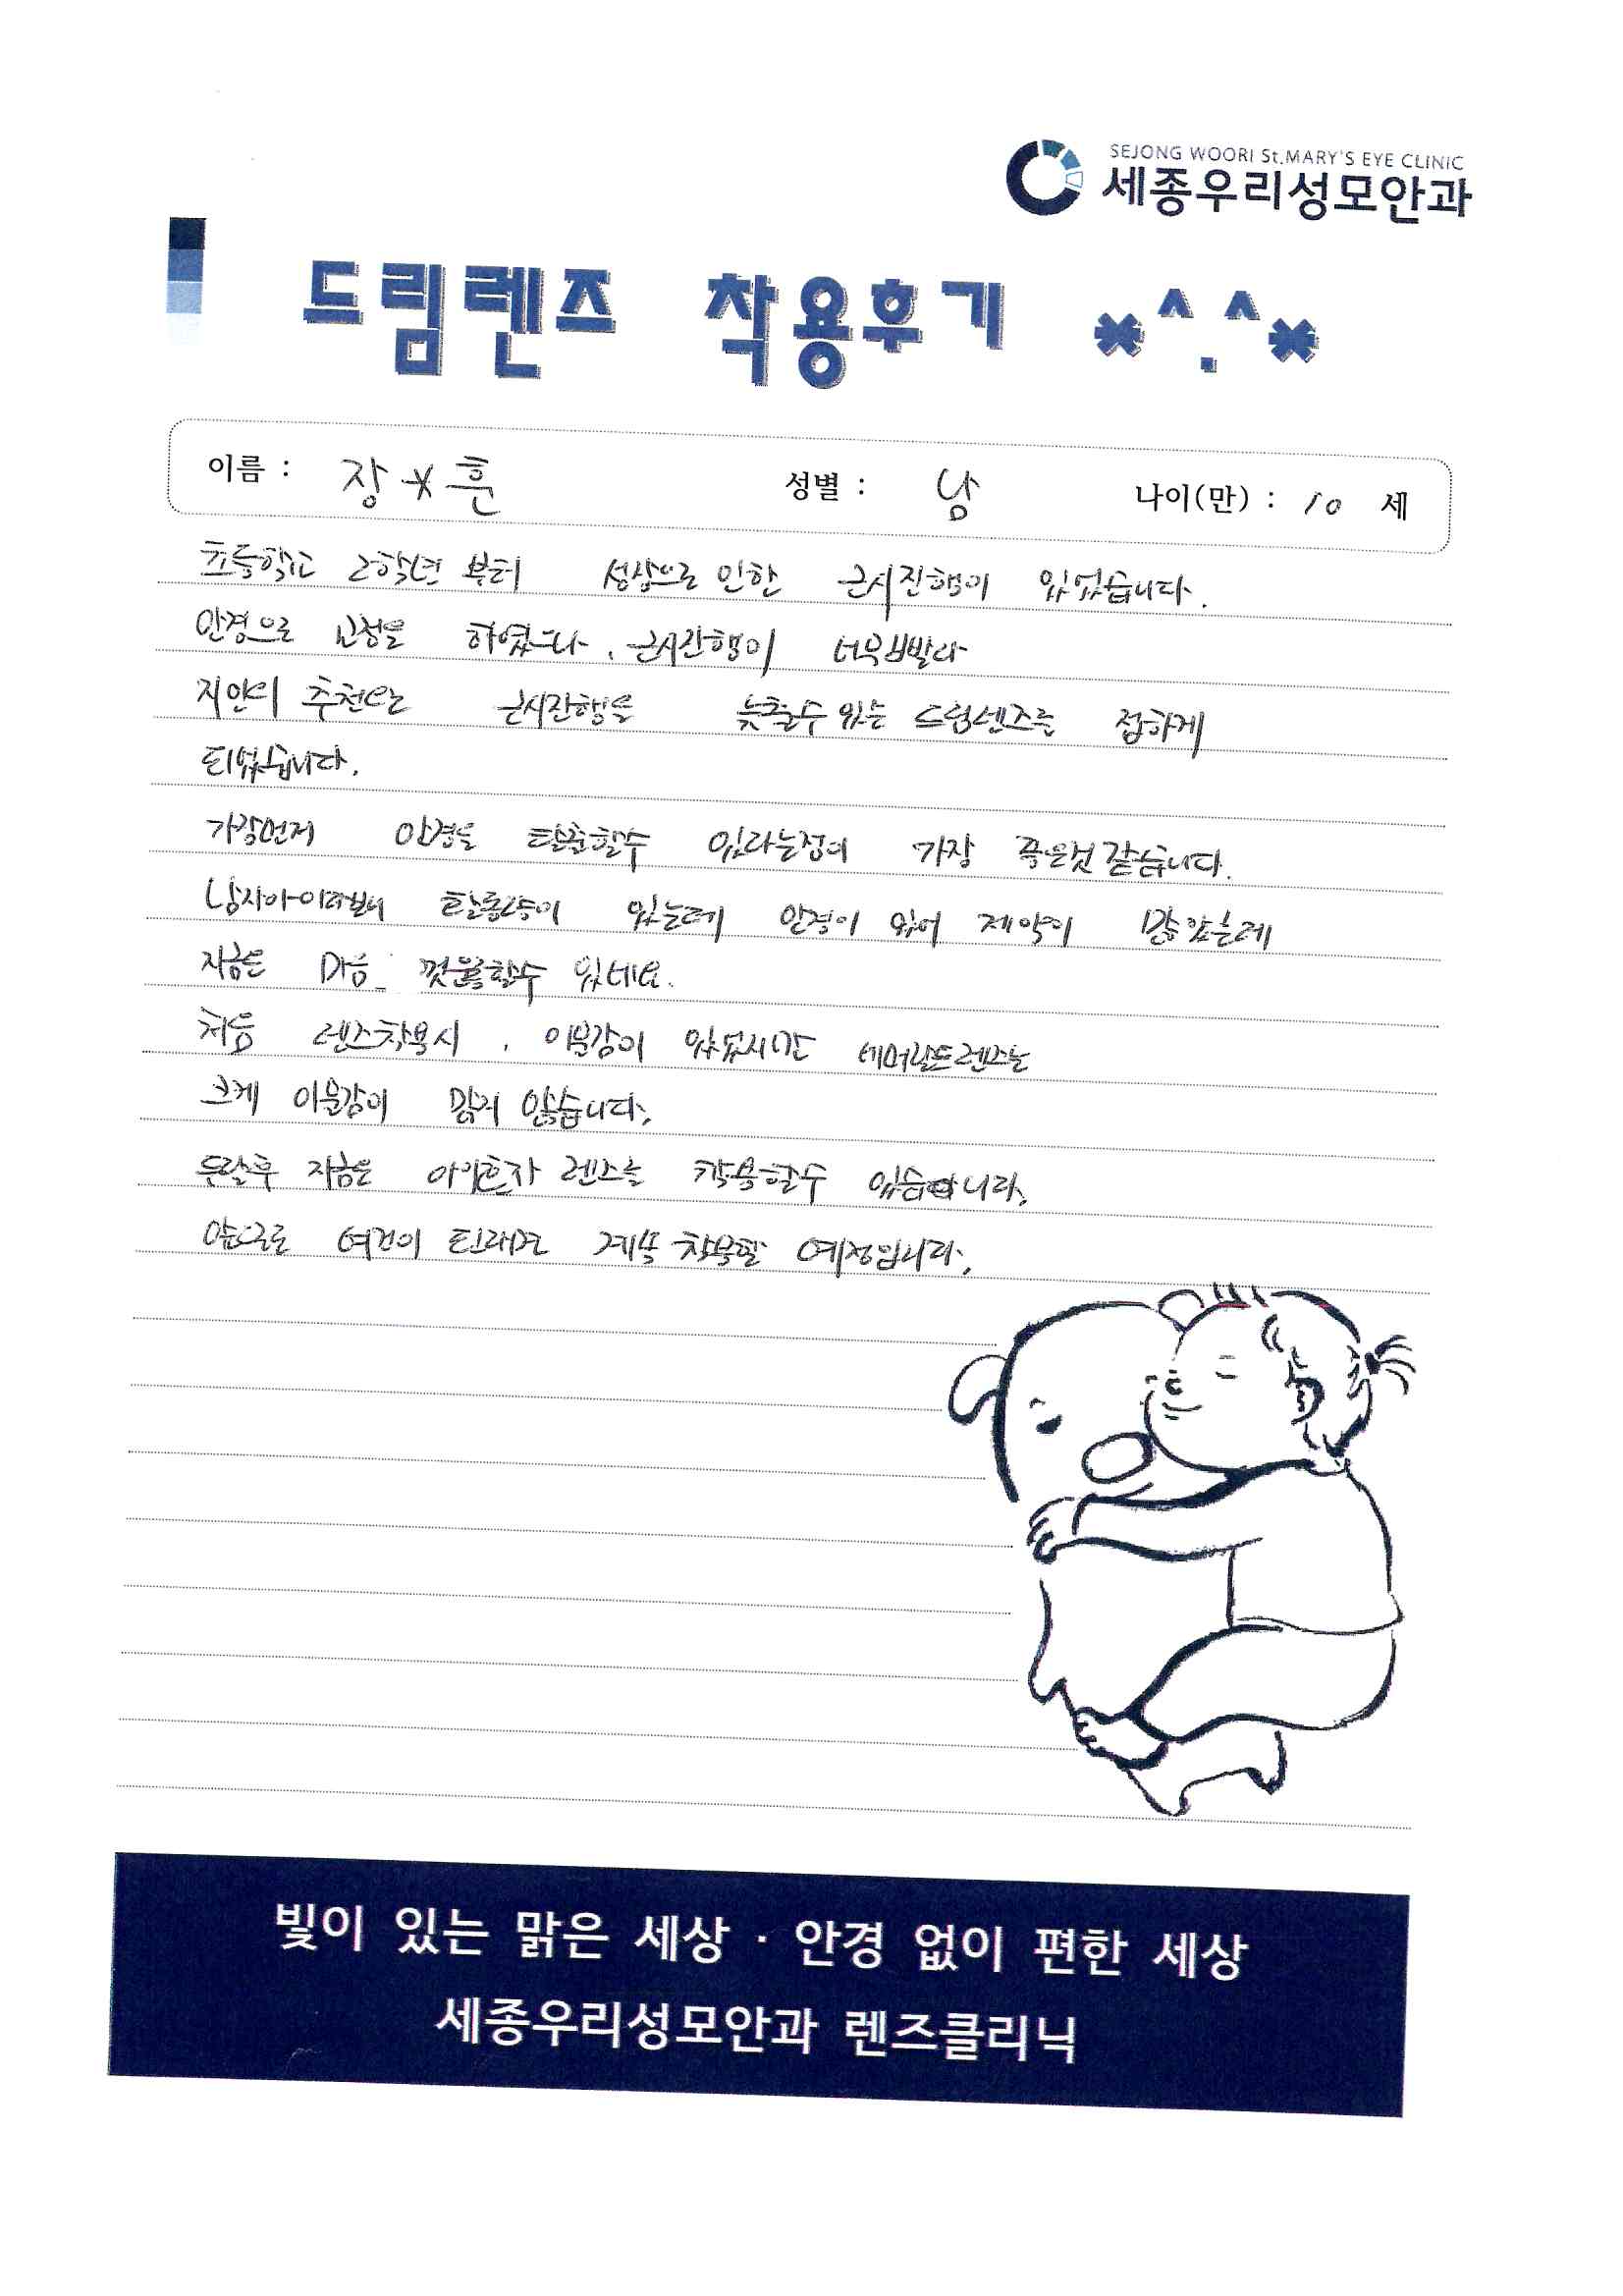 SEJONG WOORI St.MARY'S EYE CLINIC
세종우리성모안과
드림렌즈 착용후기 *^.^*
이름 : 장*훈 성별 : 남 나이(만) : 10 세
초등학교 2학년 부터 성장으로 인한 근시진행이 있었습니다.
안경으로 교정을 하였으나, 근시진행이 너무빨라
지인의 추천으로 근시진행을 늦출수 있는 드림렌즈를 접하게
되었습니다.
가장먼저 안경을 탈출할수 있다는점이 가장 좋은것 같습니다.
남자아이다보니 활동량이 있는데 안경이 있어 제약이 많았는데
지금은 마음 껏활동할수 있네요.
처음 렌즈착용시, 이물감이 있었지만 에메랄드렌즈는
크게 이물감이 많지 않습니다.
한달후 지금은 아이혼자 렌즈를 착용할수 있습니다.
앞으로 여건이 된다면 계속 착용할 예정입니다.
빛이 있는 맑은 세상 · 안경 없이 편한 세상
세종우리성모안과 렌즈클리닉